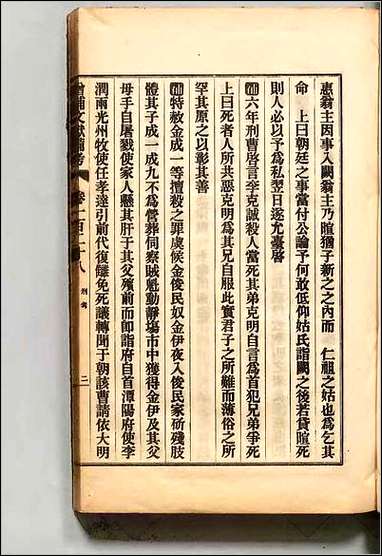 惠翁主因事入闕翁主乃暄猶子新之之內而　仁祖之姑也爲乞其
命　上曰朝廷之事當付公論予何敢低仰姑氏詣闕之後若貸暄死
則人必以予爲私翌日遂允臺啓
補六年刑曹啓言李克誠殺人當死其弟克明自言爲首犯兄弟爭死
上曰死者人所共惡克明爲其兄自服此實君子之所難而薄俗之所
罕其原之以彰其善
補特赦金成一等擅殺之罪虞候金俊民奴金伊夜入俊民家斫殘肢
體其子成一成九不爲營葬伺察賊魁動靜場市中獲得金伊及其父
母手自屠戮使家人懸其肝于其父殯前而卽詣府自首潭陽府使李
潤雨光州牧使任孝達引前代復讎免死議轉聞于朝該曹請依大明
增補文獻備考　卷一百二十八　刑考　三